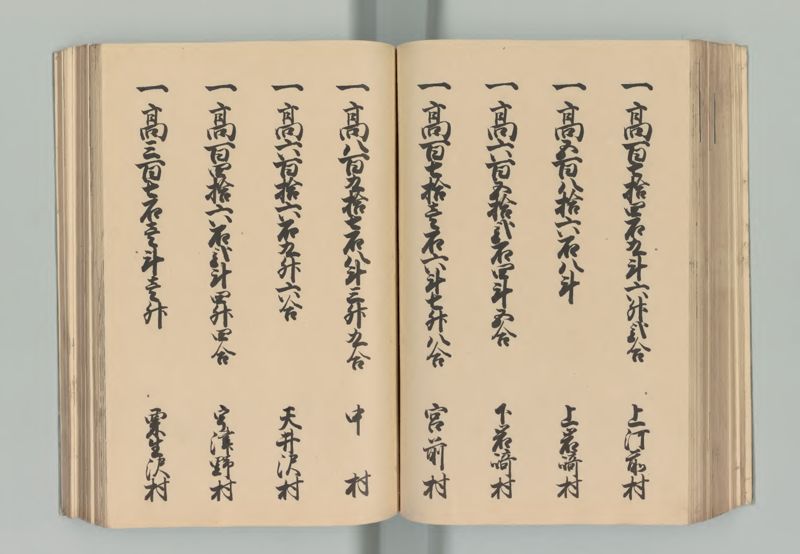 一高百七拾四石九斗六升弐合 上河原村
一高五百八拾六石八斗 上岩崎村
一高六百五拾弐石四斗五合 下岩崎村
一高百七拾壱石六斗七升八合 宮前村
一高八百五拾七石八斗三升九合 中村
一高六百拾六石九升六合 天井沢村
一高百四拾六石弐斗四升四合 宇津野村
一高三百七石壱斗壱升 粟生沢村